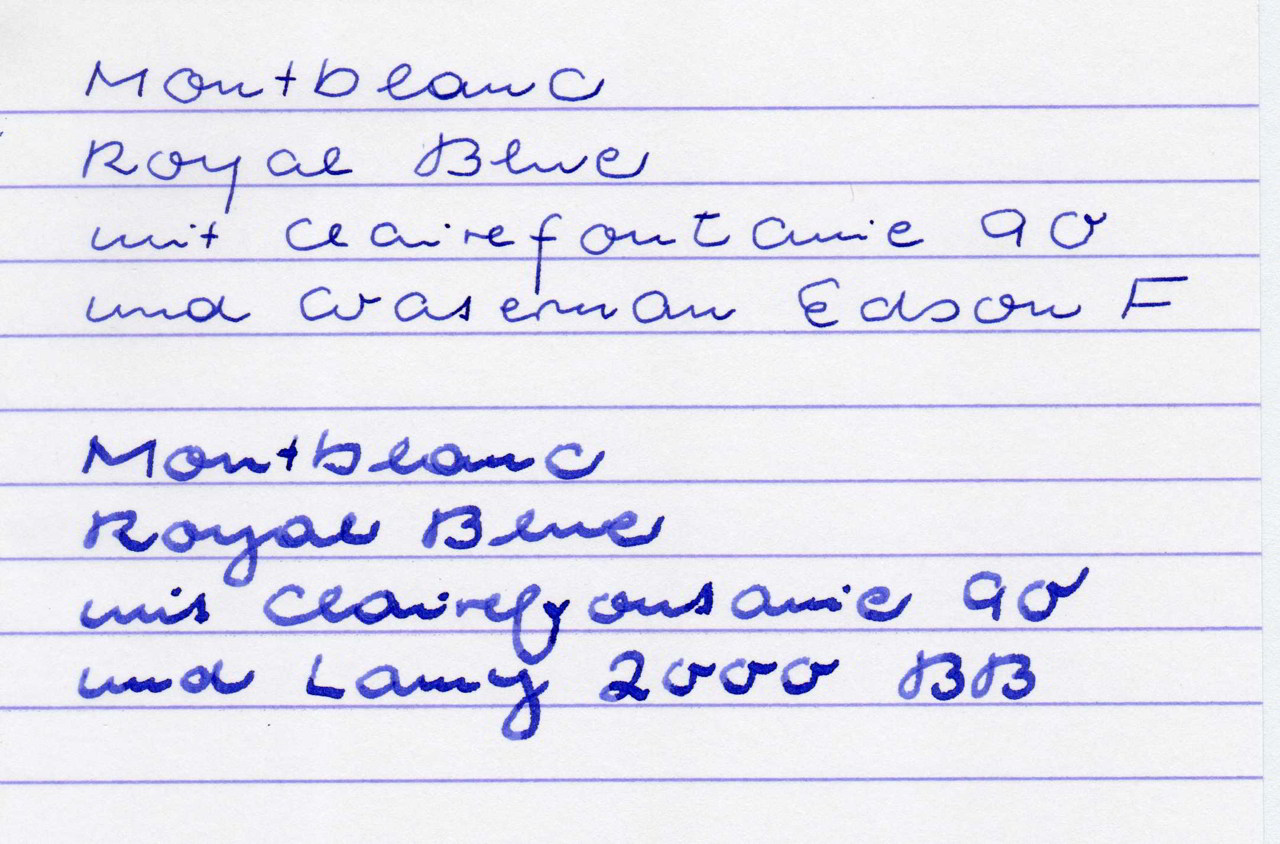 Montblanc
Royal Blue
mit Clairefontaine 90
und Waterman Edson F
Montblanc
Royal Blue
mit Clairefontaine 90
und Lamy 2000 BB